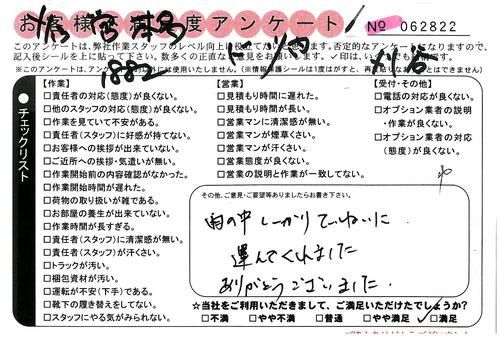 お客様満足度アンケート
No 062822
このアンケートは、弊社作業スタッフのレベル向上に役立てたいと思います。否定的なアンケートになりますので、
記入後シールを上に貼って下さい。数多くの正直なご意見をお願いします。✓印は、いくつでも
1882
【作業】
□責任者の対応(態度)が良くない。
□他のスタッフの対応(態度)が良くない。
□作業を見ていて不安がある。
□責任者(スタッフ)に好感が持てない。
□お客様への挨拶が出来ていない。
□ご近所への挨拶・気遣いが無い。
□作業開始前の内容確認がなかった。
□作業開始時間が遅れた。
□荷物の取り扱いが雑である。
□お部屋の養生が出来ていない。
□作業時間が長すぎる。
□責任者(スタッフ)に清潔感が無い。
□責任者(スタッフ)が汗くさい。
□トラックが汚い。
□梱包資材が汚い。
□運転が不安(下手)である。
□靴下の履き替えをしてない。
□スタッフにやる気がみられない。
【営業】
□見積もり時間に遅れた。
□見積もり時間が長い。
□営業マンに清潔感が無い。
□営業マンが煙草くさい。
□営業マンが汗くさい。
□営業態度が良くない。
□営業の説明と作業が一致してない。
【受付・その他】
□電話の対応が良くない。
□オプション業者の説明
・作業が良くない。
□オプション業者の対応
(態度)が良くない。
チェックリスト
その他、ご意見・ご要望等ありましたらお書き下さい。
雨の中しっかりていねいに
運んでくれました
ありがとうございました.
☆当社をご利用いただきまして、ご満足いただけたでしょうか?
□不満 □やや不満 □普通 □やや満足 ✓満足